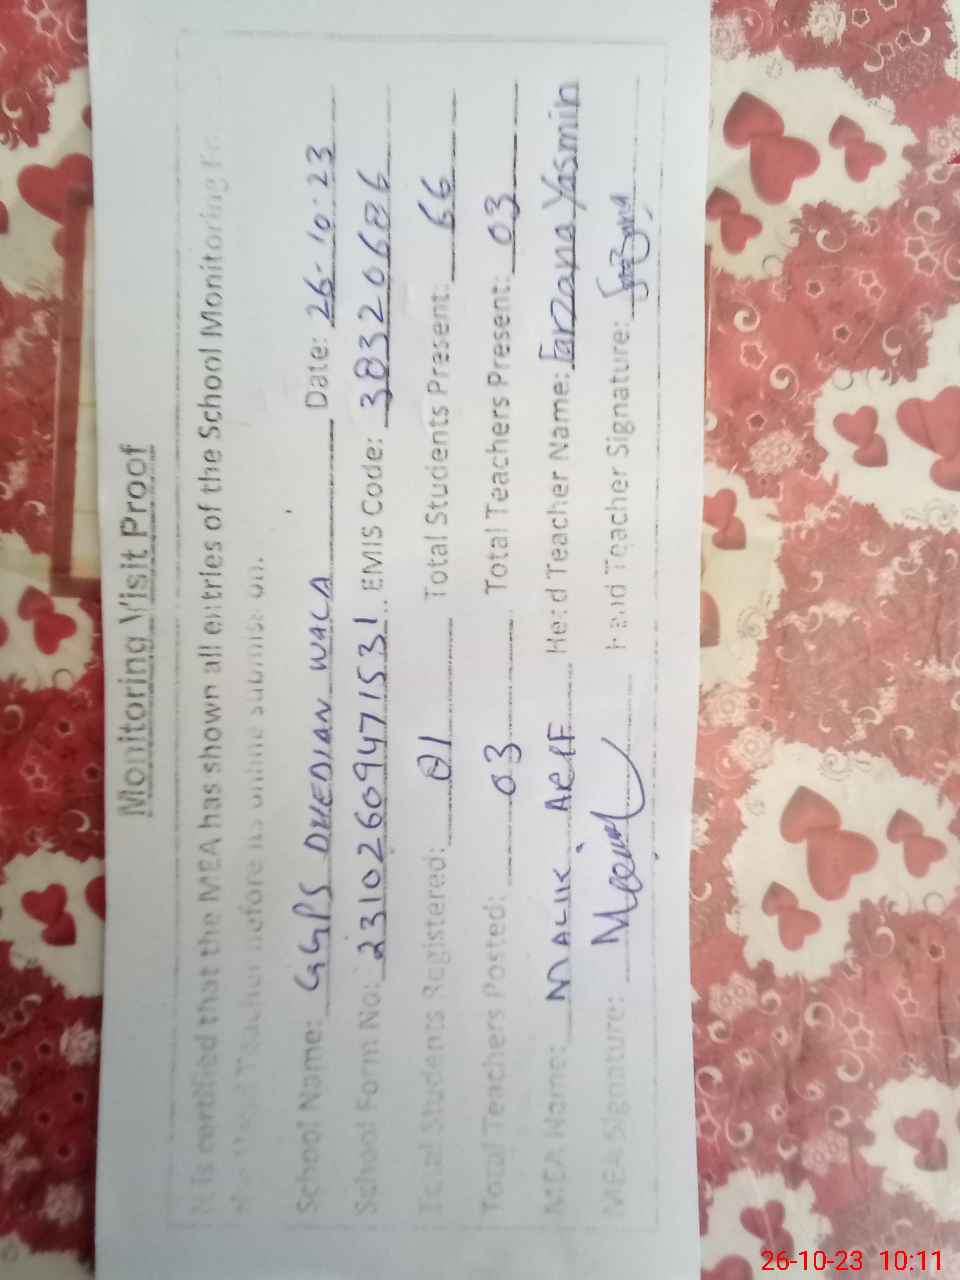 Monitoring Visit Proof
It is certified that the MEA has shown all entries of the School Monitoring
Teacher before its online submission.
School Name: GGPS DHEDIAN WALA Date: 26-10-23
School Form No: 231026094715 31 EMIS Code: 38320686
Total Students Registered: 81 Total Students Present: 66
Total Teachers Posted: 03 Total Teachers Present: 03
MEA Name: MALIK ARIF Head Teacher Name: Farzana Yasmin
MEA Signature: Head Teacher Signature:
26-10-23 10:11